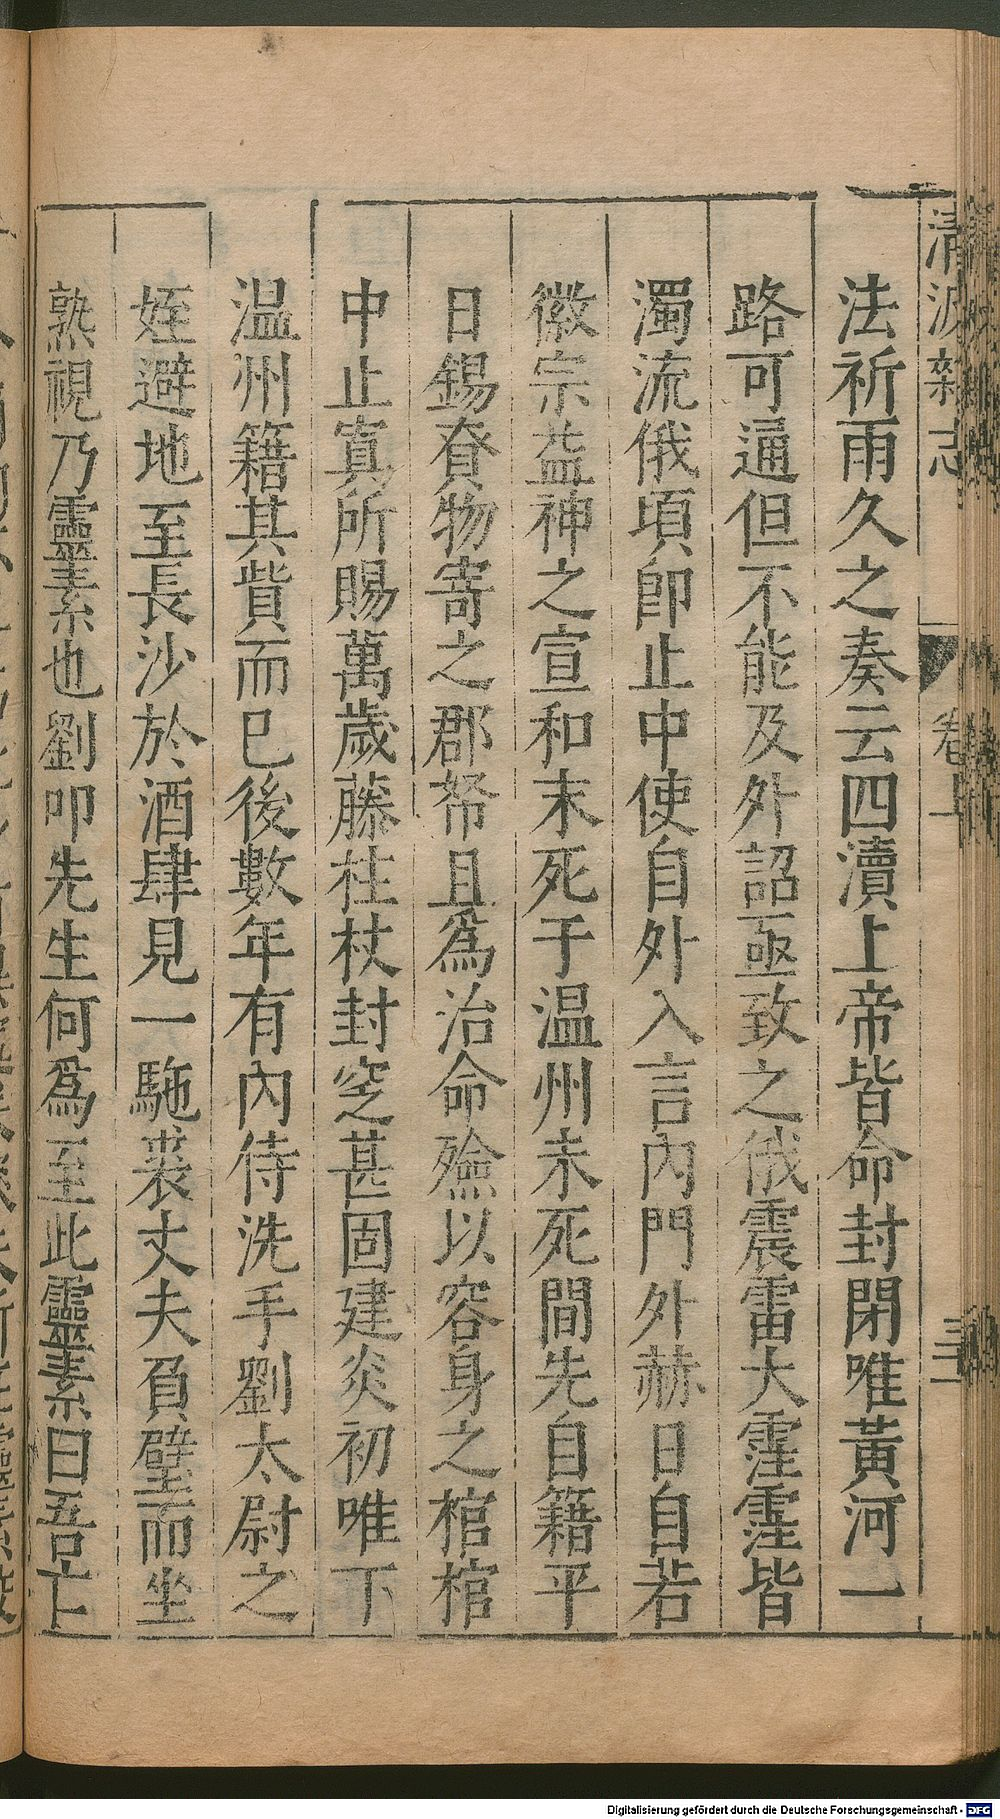 清波雜志 卷上 三
法祈雨久之奏云四瀆上帝皆命封閉唯黃河一
路可通但不能及外詔亟致之俄震雷大霔霔皆
濁流俄頃卽止中使自外入言內門外赫日自若
徽宗益神之宣和末死于温州未死間先自籍平
日錫賚物寄之郡帑且為治命殮以容身之棺棺
中止寘所賜萬歲藤柱杖封窆甚固建炎初唯下
温州籍其貲而已後數年有內侍洗手劉太尉之
姪避地至長沙於酒肆見一駞裘丈夫負壁而坐
熟視乃靈素也劉叩先生何為至此靈素曰吾亡
Digitalisierung gefördert durch die Deutsche Forschungsgemeinschaft - DFG